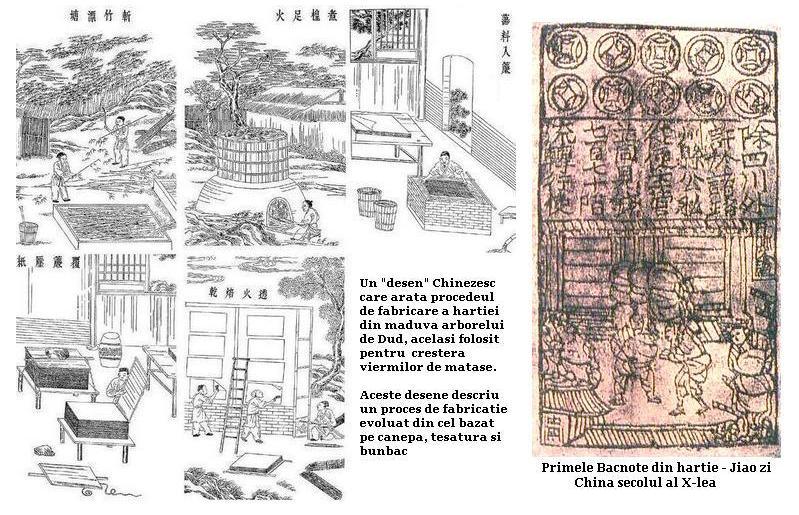 斬竹漂塘
煮楻足火
蕩料入簾
覆簾壓紙
透火焙乾
Un "desen" Chinezesc
care arata procedeul
de fabricare a hartiei
din maduva arborelui
de Dud, acelasi folosit
pentru crestera
viermilor de matase.
Aceste desene descriu
un proces de fabricatie
evoluat din cel bazat
pe canepa, tesatura si
bunbac
除四川外
許於諸路
州縣公私
七百七十陌
流轉行使
Primele Bacnote din hartie - Jiao zi
China secolul al X-lea